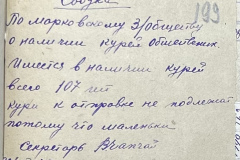 Сводка
199
По марковскому З/обществу
о наличии курей обществен.
Имеется в наличии курей
всего 107 шт
кури к отправке не подлежат
потому что маленькии
Секретарь